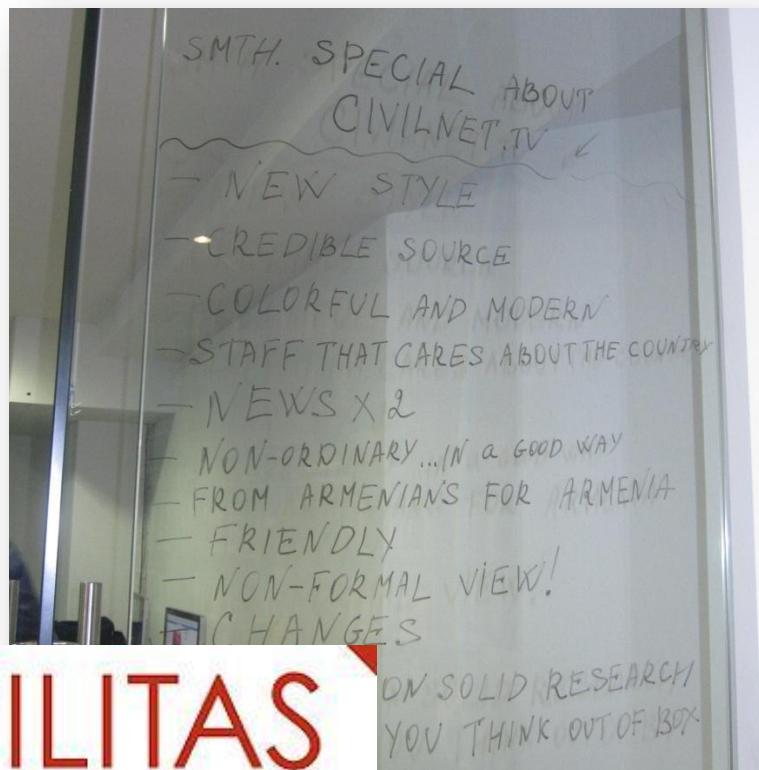 SMTH. SPECIAL ABOUT
CIVILNET.TV
- NEW STYLE
- CREDIBLE SOURCE
- COLORFUL AND MODERN
- STAFF THAT CARES ABOUT THE COUNTRY
- NEWS X 2
- NON-ORDINARY...IN a GOOD WAY
- FROM ARMENIANS FOR ARMENIA
- FRIENDLY
- NON-FORMAL VIEW!
- CHANGES
ON SOLID RESEARCH
YOU THINK OUT OF BOX
ILITAS